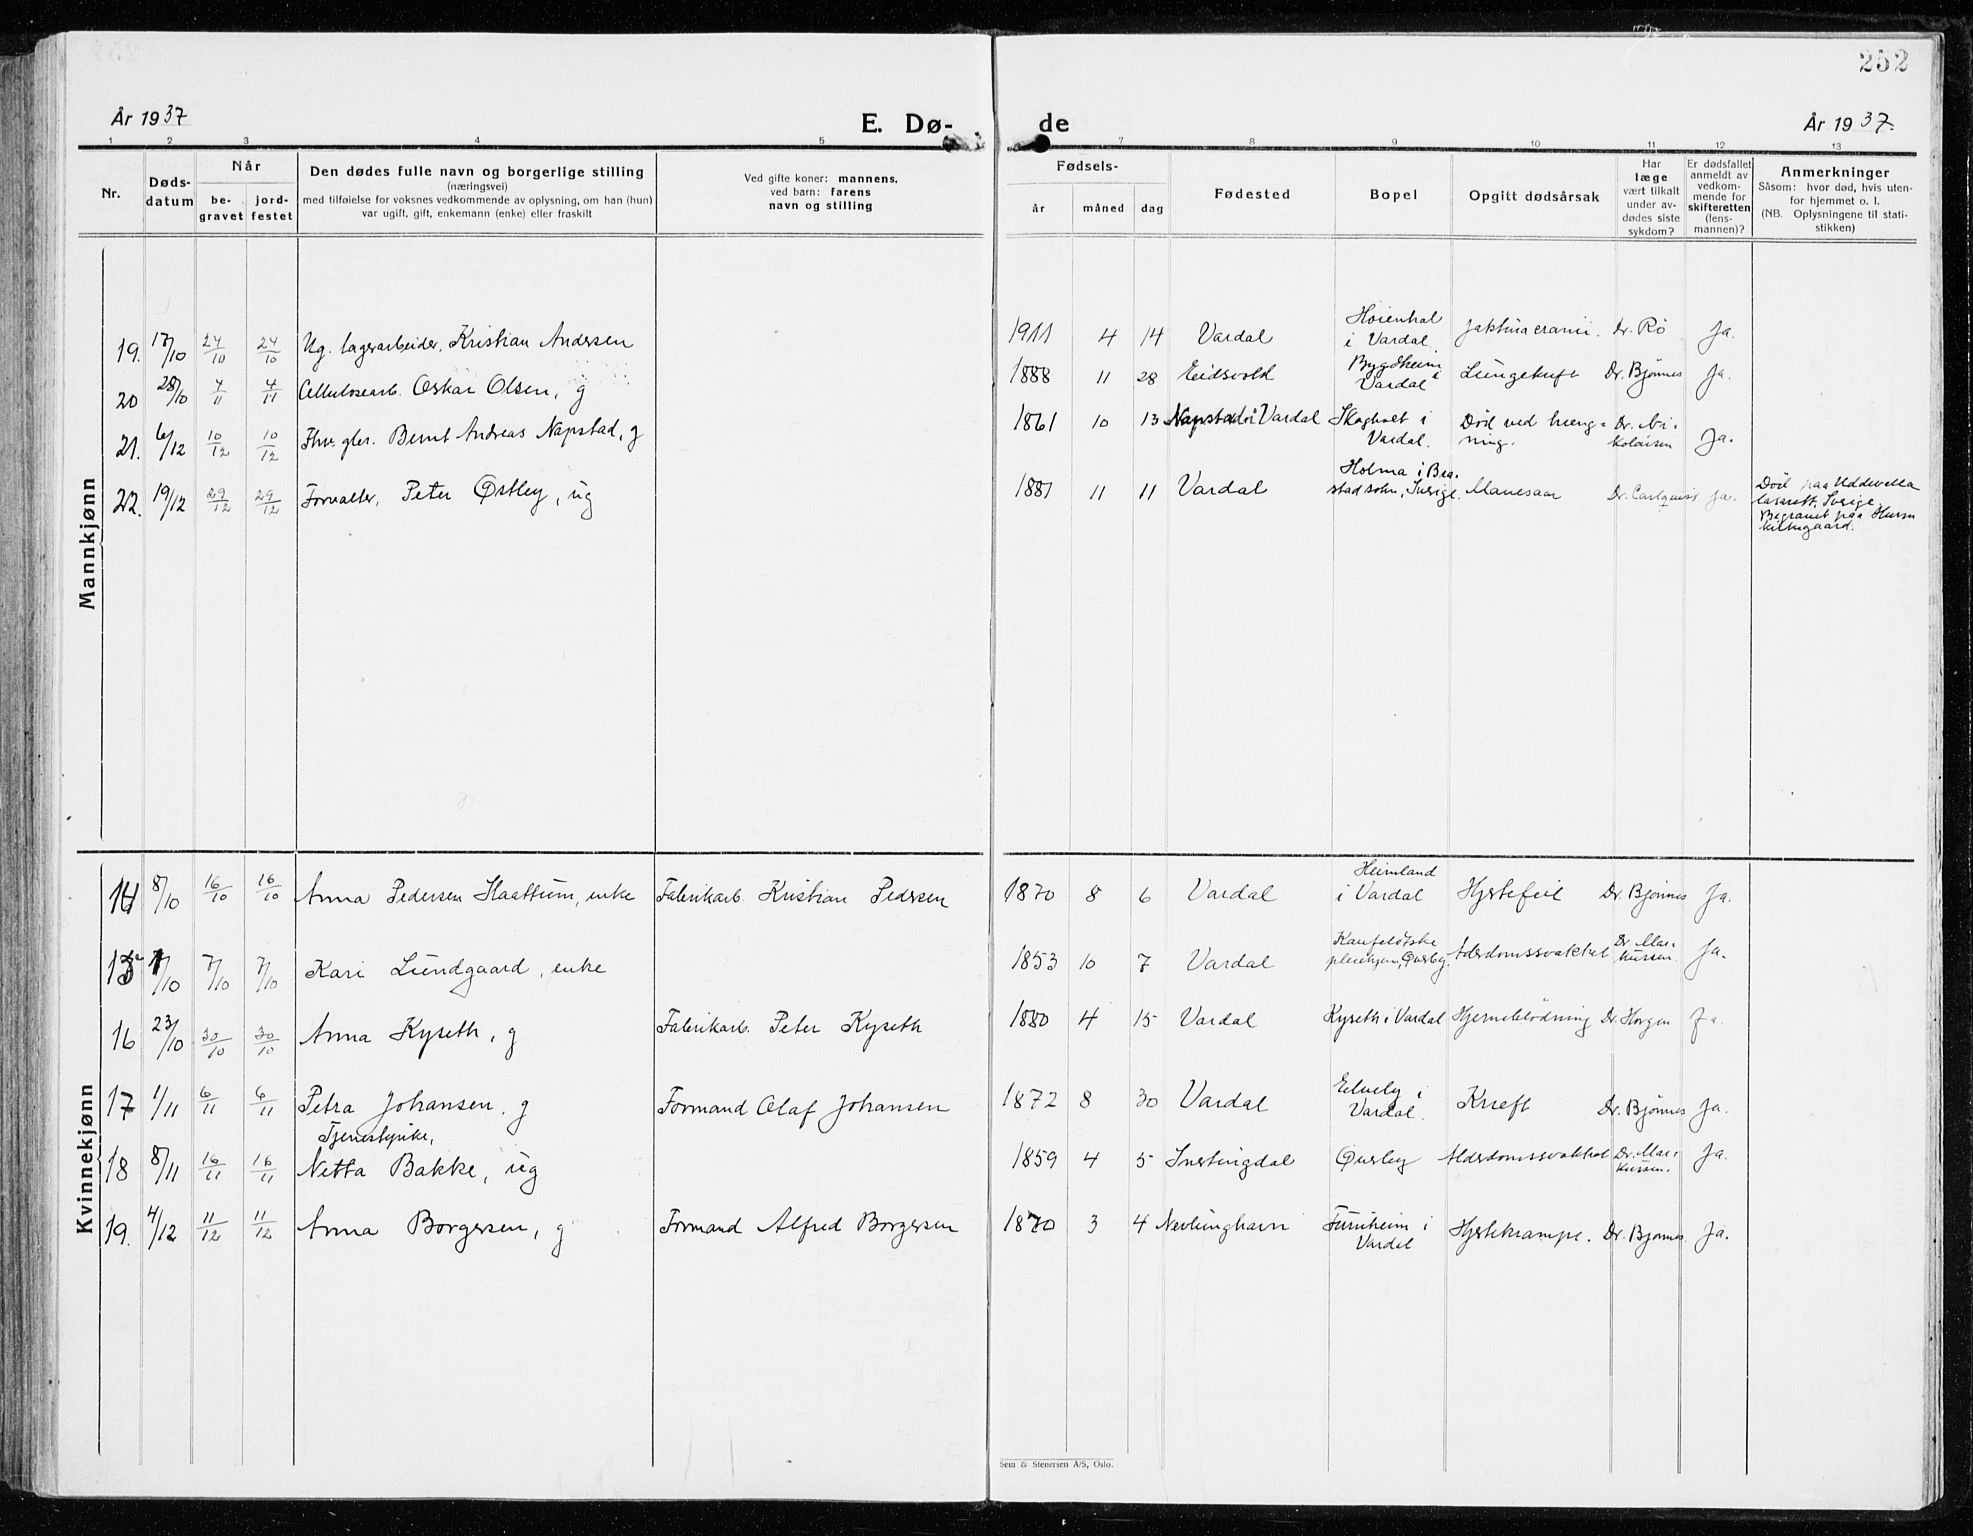 252
År 1937
E. Dø-
de
År 1937.
1 2 3 4 5 7 8 9 10 11 12 13
Nr.
Døds-
datum
Når
be-
gravet
jord-
festet
Den dødes fulle navn og borgerlige stilling
(næringsvei)
med tilføielse for voksnes vedkommende av oplysning, om han (hun)
var ugift, gift, enkemann (enke) eller fraskilt
Ved gifte koner: mannens,
ved barn: farens
navn og stilling
Fødsels-
år
måned
dag
Fødested
Bopel
Opgitt dødsårsak
Har
læge
vært tilkalt
under av-
dødes siste
sykdom?
Er dødsfallet
anmeldt av
vedkom-
mende for
skifteretten
(lens-
mannen)?
Anmerkninger
Såsom: hvor død, hvis uten-
for hjemmet o. l.
(NB. Oplysningene til stati-
stikken)
Mannkjønn
19. 17/10 24/10 24/10 Ug. lagerarbeider, Kristian Andersen 1911 4 14 Vardal Høienhal
i Vardal. Dr. Rö Ja.
20 28/10 4/11 4/11 Cellulosearb. Oskar Olsen, g 1888 11 28 Eidsvold Bygdheim i
Vardal Dr. Bjønnes Ja.
21. 6/12 10/12 10/12 Bernt Andreas Napstad, g 1861 10 13 Napstad i Vardal Skogholt i
Vardal. Död ved hæng-
ning. Dr. Ni-
kolaisen Ja.
22. 19/12 29/12 29/12 Forvalter, Peter Østby, ug 1881 11 11 Vardal Holma i Bra-
stad sokn, Sverige. Mavesaar Dr. Carlquist ja.
Död paa Uddevalla
lasarett, Sverige.
Begravet paa Hunn
kirkegaard.
Kvinnekjønn
14 8/10 16/10 16/10 Anna Pedersen Skaattum, enke Fabrikarb. Kristian Pedersen 1870 8 6 Vardal Heimland
i Vardal Hjertefeil Dr. Bjønnes Ja.
15 1/10 7/10 7/10 Kari Lundgaard, enke 1853 10 7 Vardal Kaufeldtske
pleiehjem, Överby. Alderdomssvakhet Dr. Mar-
kussen. Ja.
16 23/10 30/10 30/10 Anna Kyseth, g Fabrikarb. Peter Kyseth 1880 4 15 Vardal Kyseth i Vardal Hjerneblödning Dr. Horgen Ja.
17 1/11 6/11 6/11 Petra Johansen, g Formand Olaf Johansen 1872 8 30 Vardal Elveby i
Vardal. Kreft Dr. Bjønnes Ja.
Tjenestepike,
18 8/11 16/11 16/11 Netta Bakke, ug 1859 4 5 Snertingdal Överby Alderdomssvakhet Dr. Mar-
kussen. Ja.
19. 4/12 11/12 11/12 Anna Borgersen, g Formand Alfred Borgersen 1870 3 4 Nevlunghavn Furuheim i
Vardal Hjertekrampe. Dr. Bjønnes. Ja.
Sem & Stenersen A/S, Oslo.